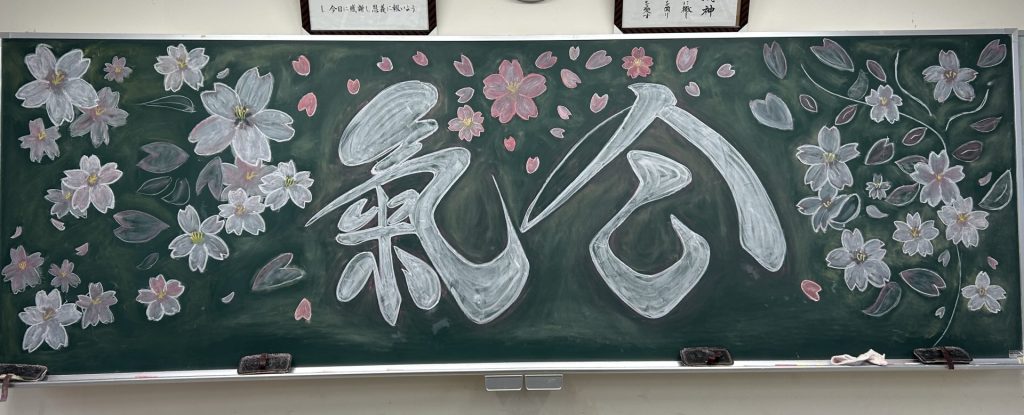 し、今日に感謝し恩義に報いよう
神
氣合